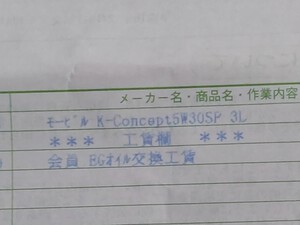 メーカー名・商品名・作業内容
ﾓｰﾋﾞﾙ K-Concept5W30SP 3L
＊＊＊ 工賃欄 ＊＊＊
会員 EGｵｲﾙ交換工賃